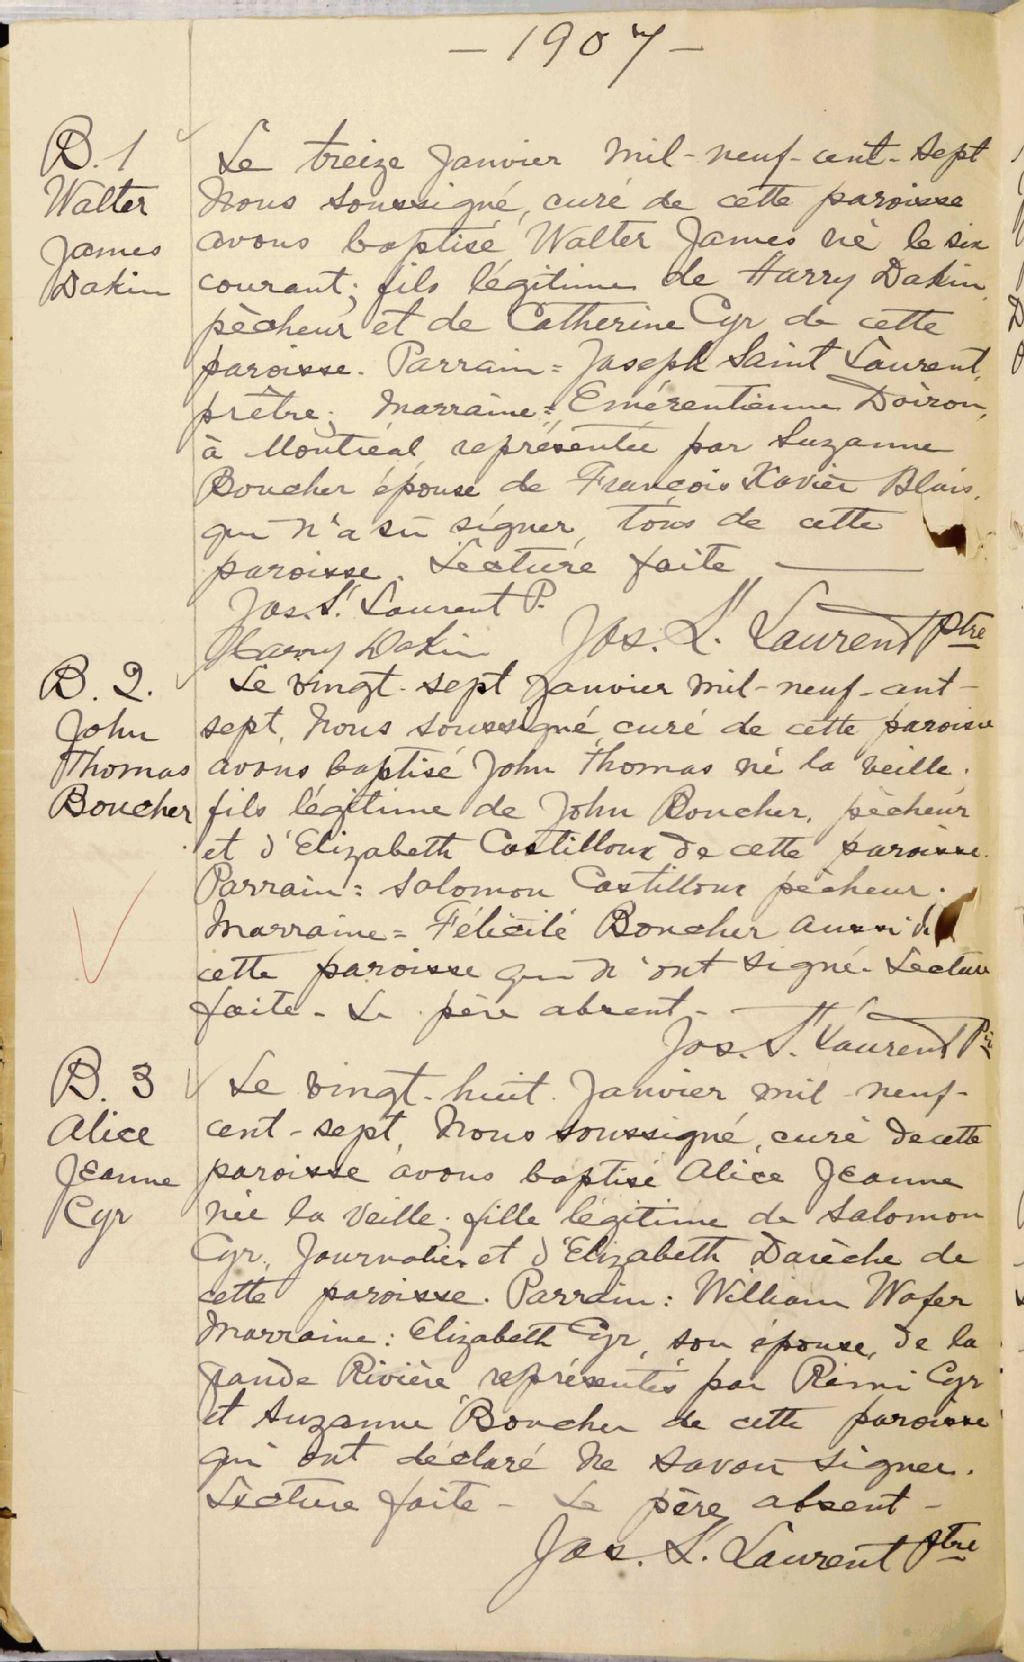 — 1907 —
B. 1
Walter
James
Dakin
Le treize Janvier mil-neuf-cent-sept
Nous soussigné, curé de cette paroisse
avons baptisé Walter James né le six
courant; fils légitime de Harry Dakin,
pêcheur et de Catherine Cyr de cette
paroisse. Parrain = Joseph Saint Laurent,
prêtre; Marraine = Emérentienne Doiron,
à Montréal, représentée par Suzanne
Boucher épouse de François Xavier Blais,
qui n'a su signer, tous de cette
paroisse. Lecture faite —
Jos. St. Laurent P.
Harry Dakin
Jos. St. Laurent Ptre
B. 2.
John
Thomas
Boucher
Le vingt-sept Janvier mil-neuf-cent-
sept, Nous soussigné, curé de cette paroisse
avons baptisé John Thomas né la veille,
fils légitime de John Boucher, pêcheur
et d'Elizabeth Castilloux de cette paroisse.
Parrain = Salomon Castilloux pêcheur.
Marraine = Félicité Boucher aussi de
cette paroisse qui n'ont signé. Lecture
faite - Le père absent -
Jos. St. Laurent Ptre
B. 3
Alice
Jeanne
Cyr
Le vingt-huit Janvier mil neuf-
cent-sept, Nous soussigné, curé de cette
paroisse avons baptisé Alice Jeanne
née la veille; fille légitime de Salomon
Cyr, Journalier et d'Elizabeth Darèche de
cette paroisse. Parrain: William Wafer
Marraine: Elizabeth Cyr, son épouse, de la
Grande Rivière, représentés par Rémi Cyr
et Suzanne Boucher de cette paroisse
qui ont déclaré ne savoir signer.
Lecture faite - Le père absent -
Jos. St. Laurent Ptre